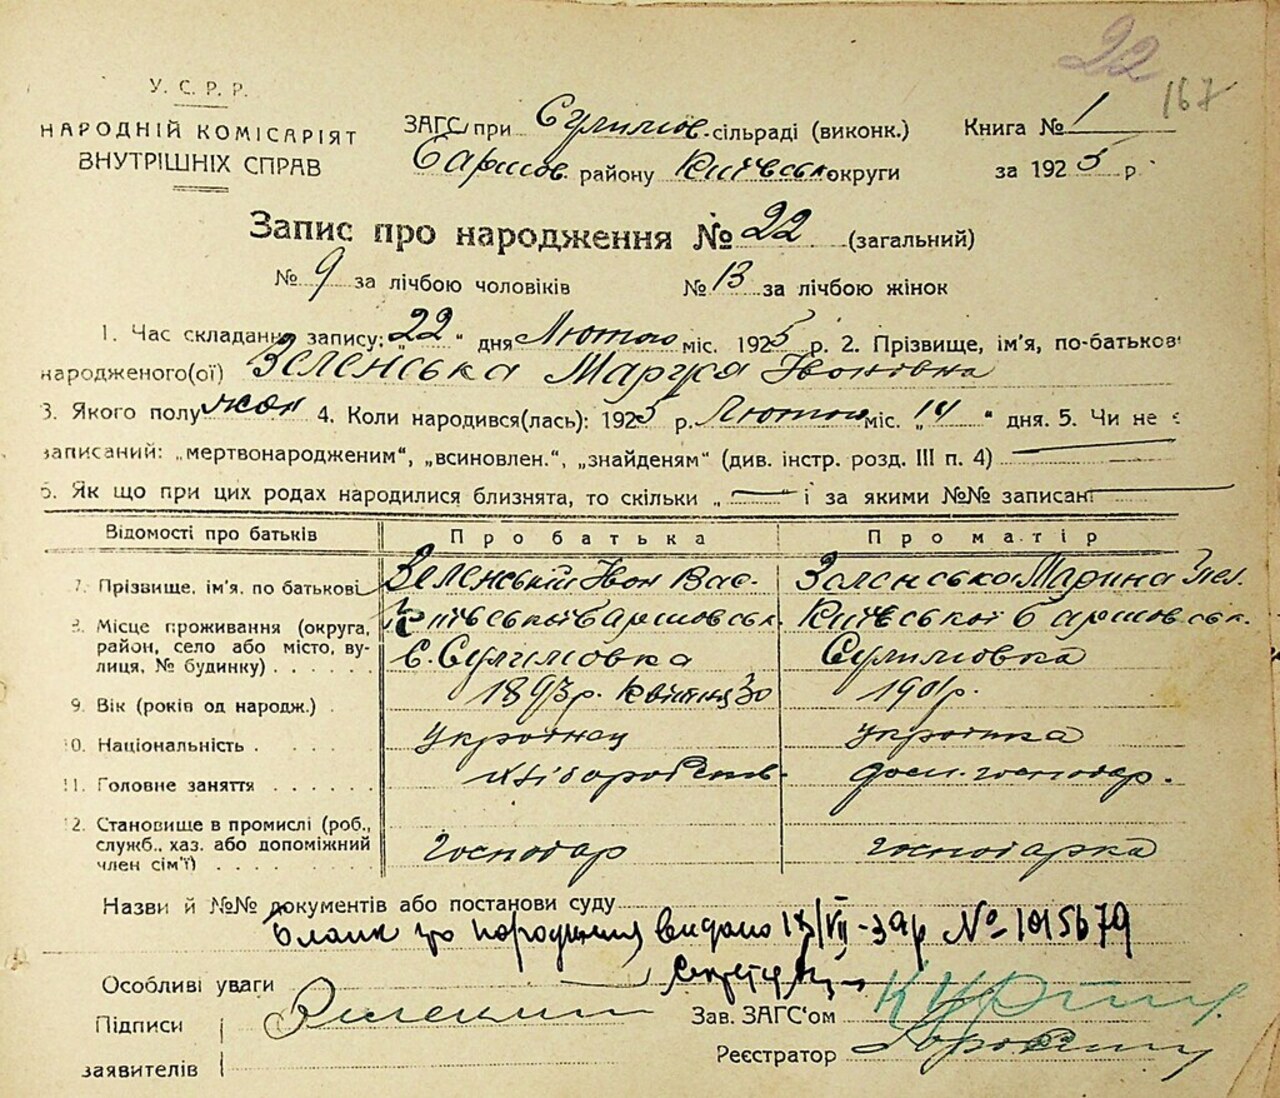 22
167
У. С. Р. Р.
НАРОДНІЙ КОМІСАРІЯТ
ВНУТРІШНІХ СПРАВ
ЗАГС при Сулимов. сільраді (виконк.)
Баришов. району Київськ округи
Книга № 1
за 1925 р.
Запис про народження № 22 (загальний)
№ 9 за лічбою чоловіків № 13 за лічбою жінок
1. Час складання запису: „22" дня Лютого міс. 1925 р. 2. Прізвище, ім'я, по-батьков
народженого(ої) Зеленська Маруся Івонівна
3. Якого полу жон 4. Коли народився(лась): 1925 р. Лютого міс. „14" дня. 5. Чи не є
записаний: „мертвонародженим", „всиновлен.", „знайденям" (див. інстр. розд. III п. 4)
6. Як що при цих родах народилися близнята, то скільки „ — " і за якими №№ записані
Відомості про батьків Про батька Про матір
7. Прізвище, ім'я, по батькові Зеленській Івон Вас. Зеленсько Марина
8. Місце проживання (округа, Київської Баришовськ. Київської Баришовськ.
район, село або місто, ву- с. Сулимовка Сулимовка
лиця, № будинку)
9. Вік (років од народж.) 1893 р. Квітня 30 1901 р.
10. Національність Українец Українка
11. Головне заняття хліборобств. дом. господар.
12. Становище в промислі (роб.,
служб., хаз. або допоміжний господар господарка
член сім'ї)
Назви й №№ документів або постанови суду
бланк про народження видано VII-39р № 1015679
Особливі уваги
Підписи
заявителів
Зав. ЗАГС'ом
Реєстратор